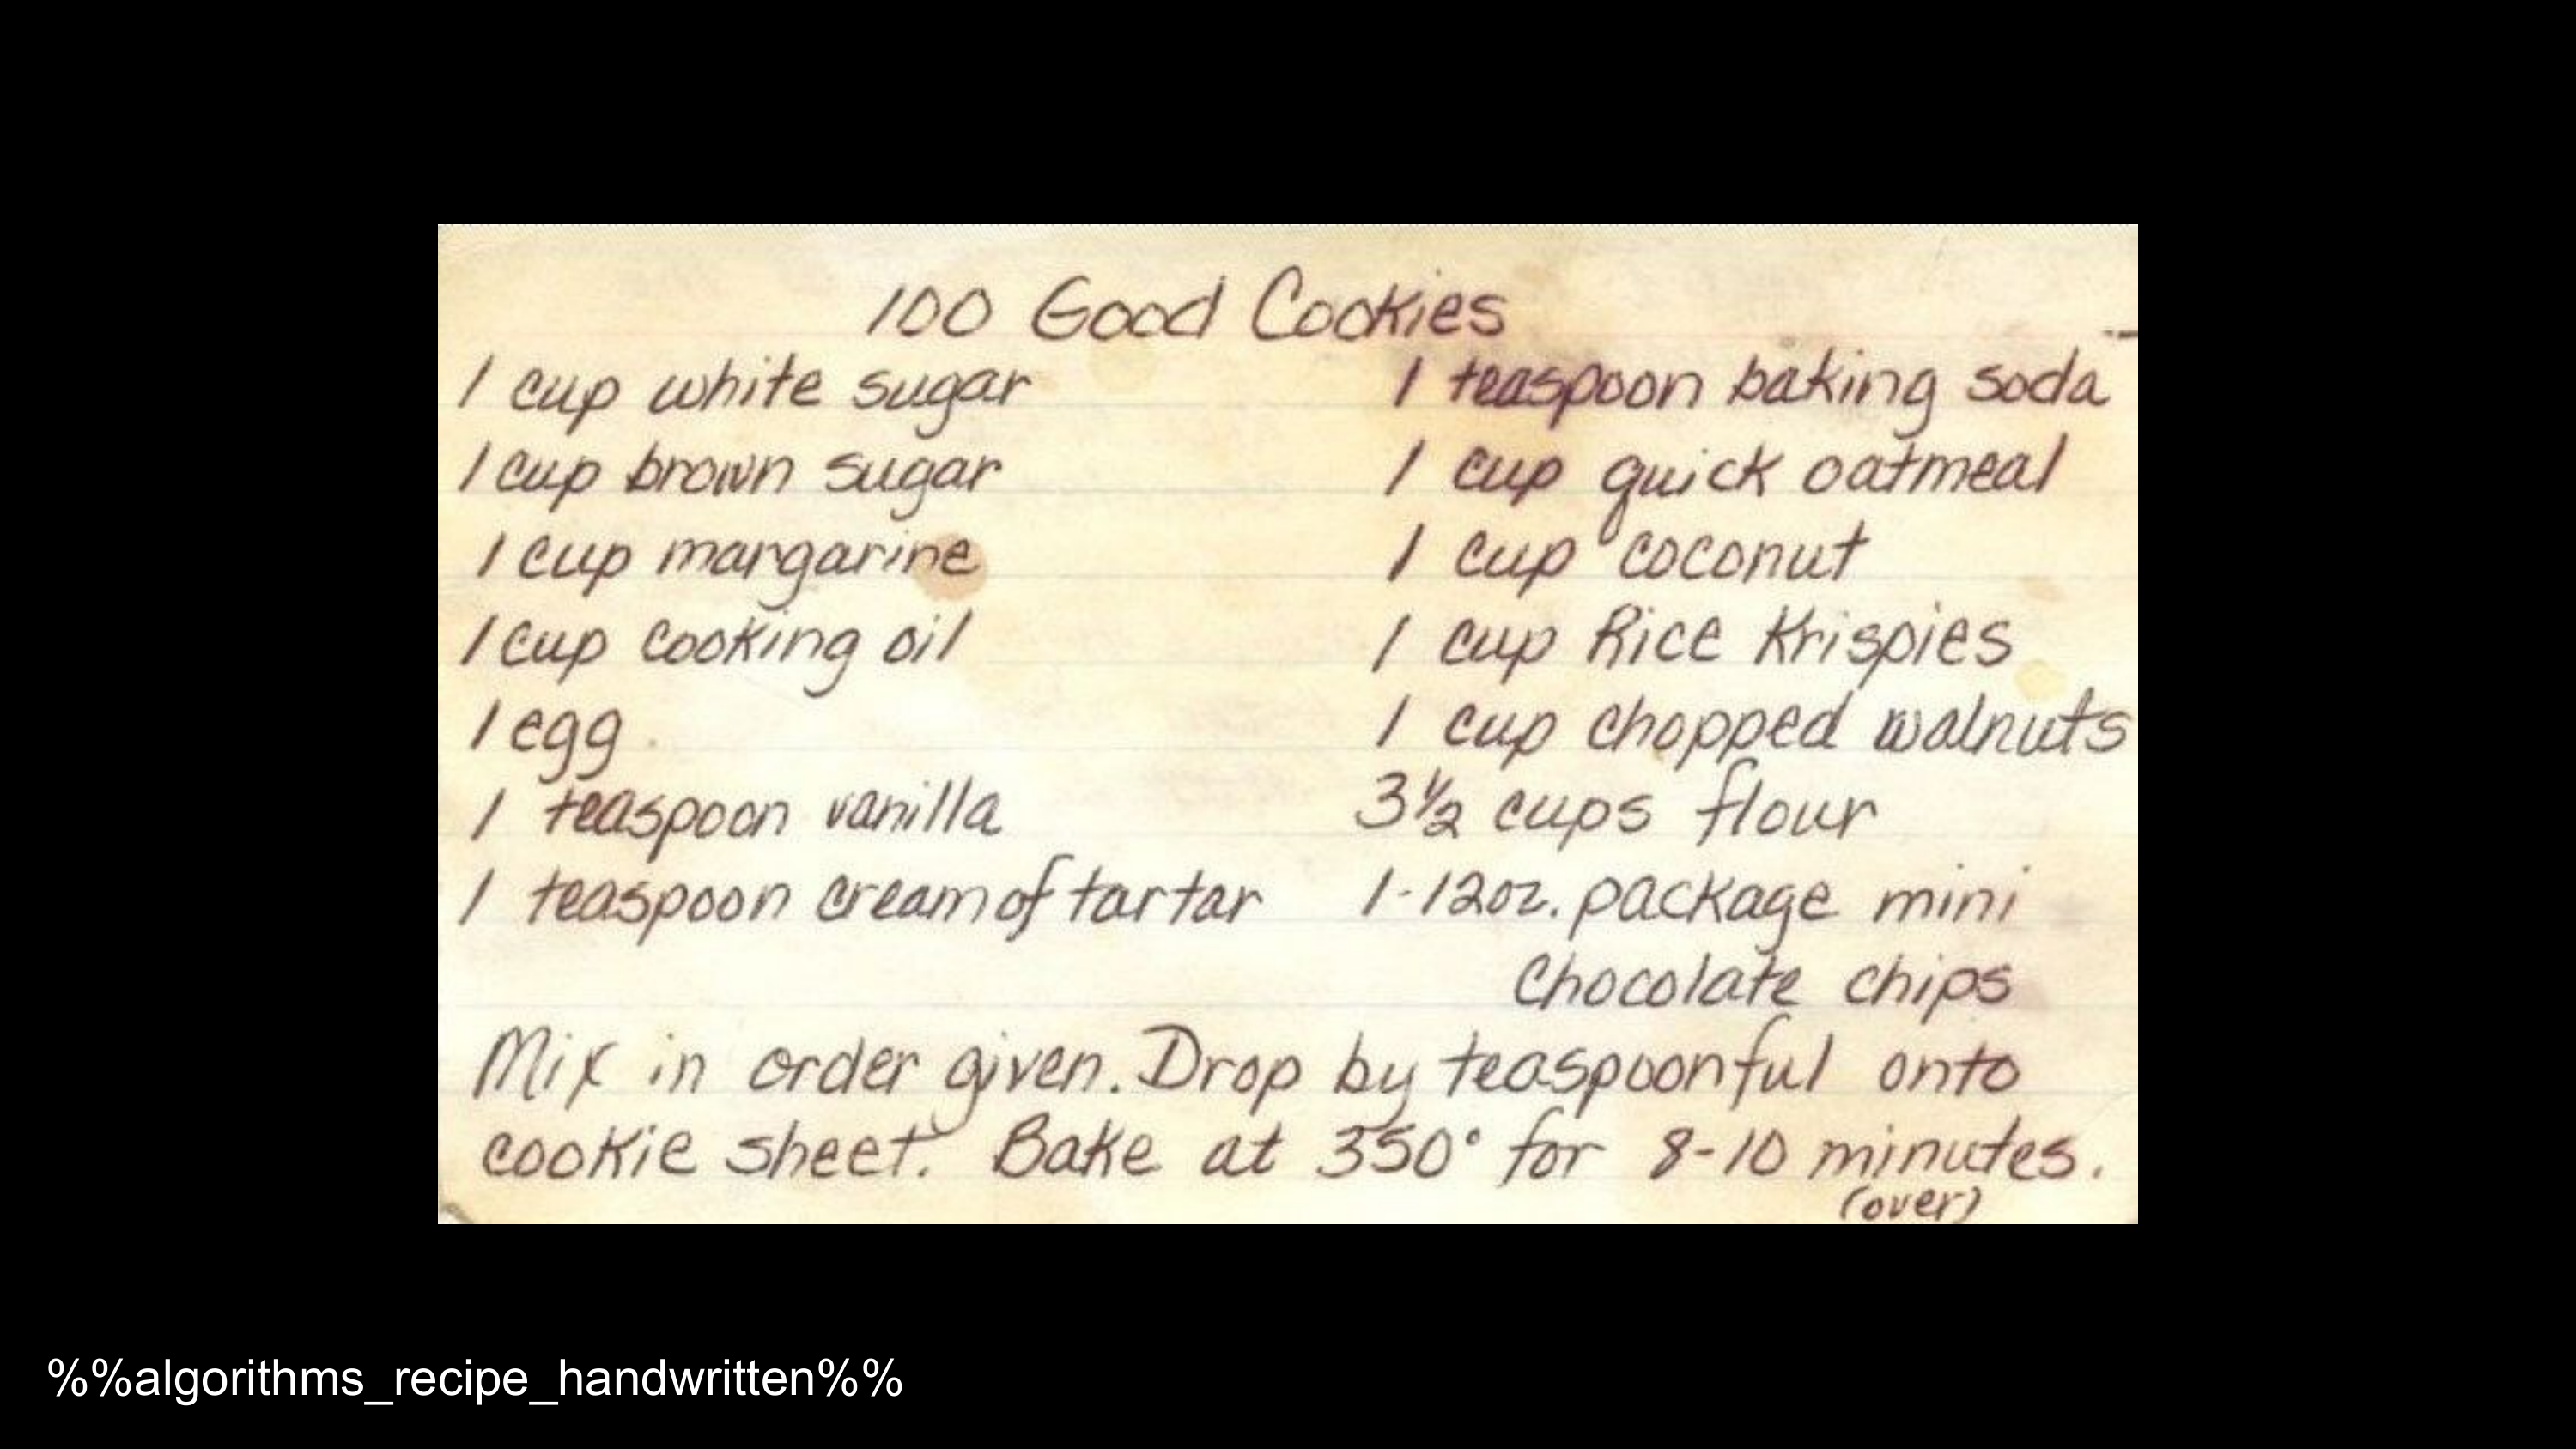 100 Good Cookies
1 cup white sugar
1 cup brown sugar
1 cup margarine
1 cup cooking oil
1 egg
1 teaspoon vanilla
1 teaspoon cream of tartar
1 teaspoon baking soda
1 cup quick oatmeal
1 cup coconut
1 cup Rice Krispies
1 cup chopped walnuts
3½ cups flour
1-12oz. package mini
Chocolate chips
Mix in order given. Drop by teaspoonful onto
cookie sheet. Bake at 350° for 8-10 minutes.
(over)
%%algorithms_recipe_handwritten%%